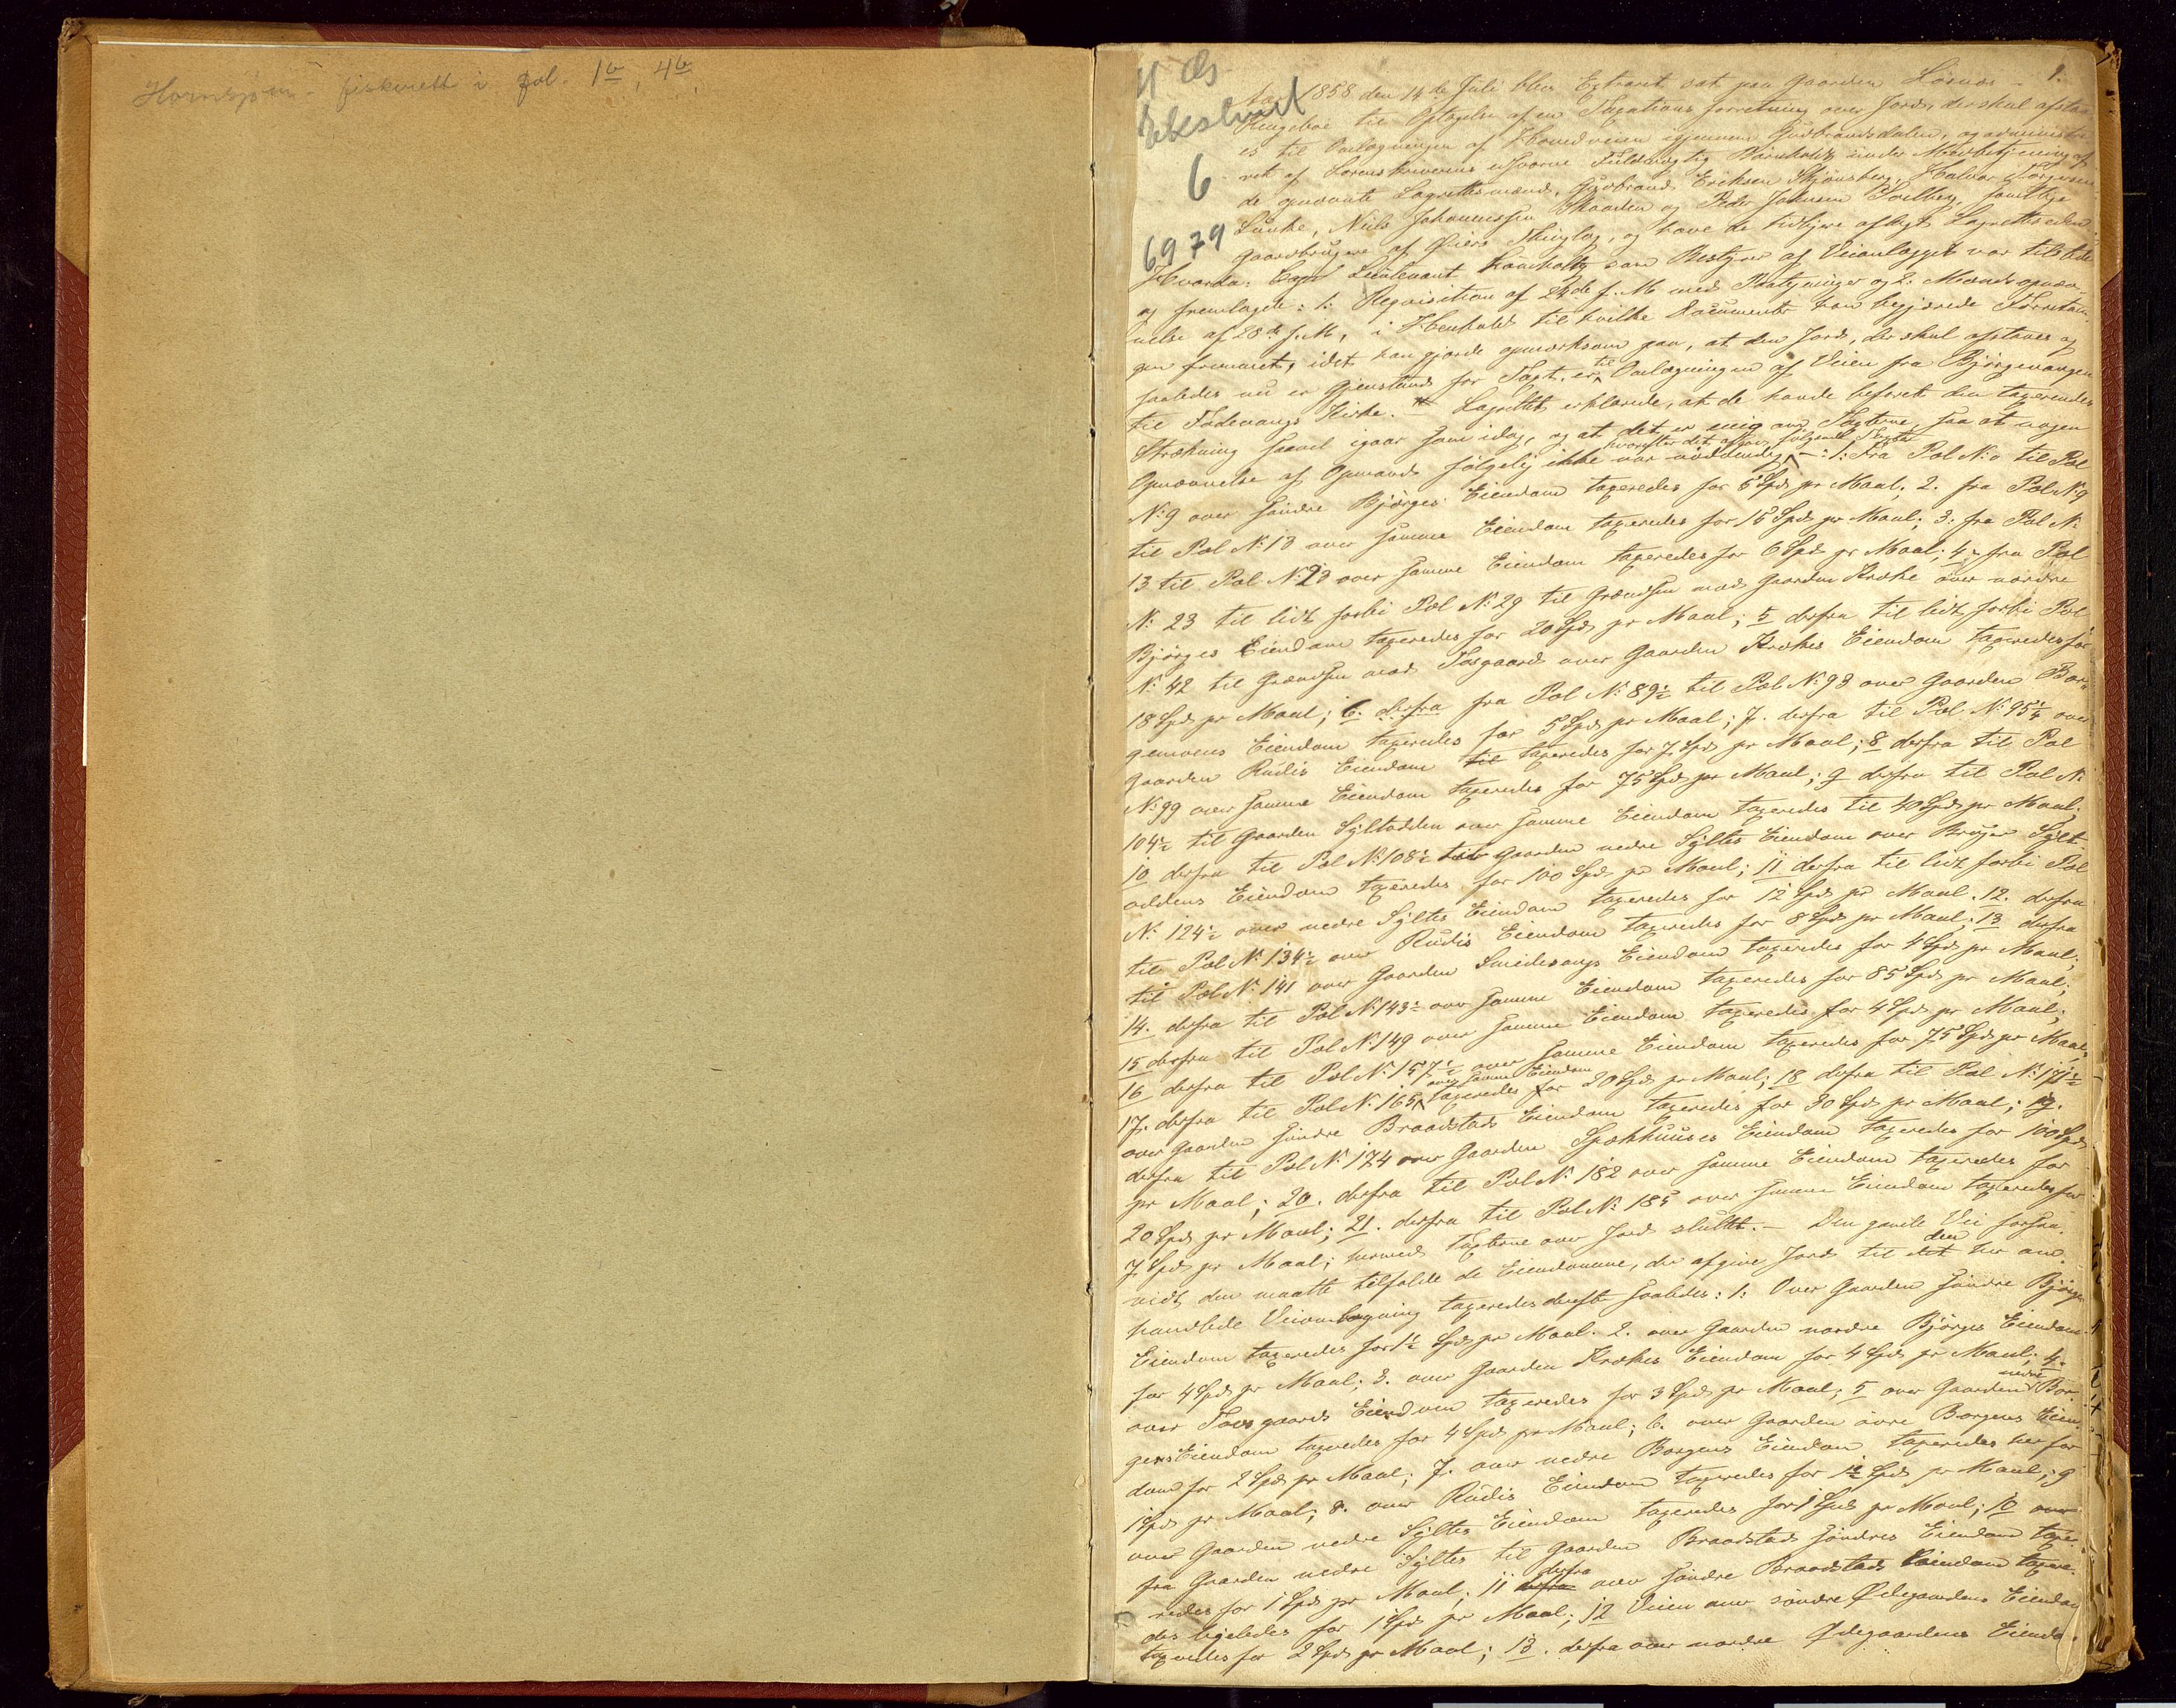 Hornsjøens fiskerett i fol. 1b, 4b.
1.
Ekstract
6
6979
Aar 1858 den 14de Juli blev Extraret sat paa Gaarden
Ringeboe til Optagelse af en Taxations forretning over Jord, der skal afstaa-
es til Omlægningen af Hovedveien igjennem Gudbrandsdalen, og administre-
ret af Sorenskriverens edsvorne Fuldmægtig under Medbetjening af
de opnævnte Lagrettesmænd, Gudbrand Eriksen Stjønsberg, Halvor Torgersen
Lunke, Niels Johannessen Skaarden og Peder Johnsen samtlige
Gaardbrugere af Øiers Thinglag, og have de tidligere aflagt Lagretteseden
Hvorda: Lieutenant som Bestyrer af Veianlægget var tilstede
og fremlagde: 1: Requisition af 24de f. M. med Paategninger og 2: Mands opnæv-
nelse af 28de f. M., i Henhold til hvilke Documenter han begjærede Forretnin-
gen fremmet, idet han gjorde opmærksom paa, at den Jord, der skal afstaaes og
saaledes nu er Gjenstand for Taxt, er til Omlægningen af Veien fra Bjørgevangen
til Fodevangs Kirke. — Lagrettet erklærede, at de havde befaret den taxerende
Strækning saavel igaar som idag, og at det er enig om Taxterne, saa at nogen
Opnævnelse af Opmænd følgelig ikke var nødvendig, hvorefter det afgav følgende Taxter —: 1: Fra Pæl No 0 til Pæl
No 9 over søndre Bjørges Eiendom taxeredes for 5 Spd pr Maal; 2. fra Pæl No 9
til Pæl No 13 over samme Eiendom taxeredes for 15 Spd pr Maal; 3: fra Pæl No
13 til Pæl No 23 over samme Eiendom taxeredes for 6 Spd pr Maal; 4. fra Pæl
No 23 til lidt forbi Pæl No 29 til Grændsen mod Gaarden Krøke over nordre
Bjørges Eiendom taxeredes for 20 Spd pr Maal; 5 derfra til lidt forbi Pæl
No 42 til Grændsen mod Tosgaard over Gaarden Krøkes Eiendom taxeredes for
18 Spd pr Maal; 6. derfra fra Pæl No 89½ til Pæl No 93 over Gaarden Bor-
gemoens Eiendom taxeredes for 5 Spd pr Maal; 7. derfra til Pæl No 95¼ over
Gaarden Rudis Eiendom til taxeredes for 7 Spd pr Maal; 8 derfra til Pæl
No 99 over samme Eiendom taxeredes for 75 Spd pr Maal; 9 derfra til Pæl No
104½ til Gaarden Syltodden over samme Eiendom taxeredes til 40 Spd pr Maal;
10 derfra til Pæl No 108½ til Gaarden nedre Syltes Eiendom over Bruger Sylt-
oddens Eiendom taxeredes for 100 Spd pr Maal; 11 derfra til lidt forbi Pæl
No 124½ over nedre Syltes Eiendom taxeredes for 12 Spd pr Maal. 12. derfra
til Pæl No 134½ over Rudis Eiendom taxeredes for 8 Spd pr Maal; 13 derfra
til Pæl No 141 over Gaarden Smedsengs Eiendom taxeredes for 4 Spd pr Maal;
14. derfra til Pæl No 143½ over samme Eiendom taxeredes for 85 Spd pr Maal;
15 derfra til Pæl No 149 over samme Eiendom taxeredes for 4 Spd pr Maal;
16 derfra til Pæl No 157½ over samme Eiendom taxeredes for 75 Spd pr Maal;
17. derfra til Pæl No 165 over samme Eiendom taxeredes for 20 Spd pr Maal; 18 derfra til Pæl No 171½
over Gaarden søndre Braadstads Eiendom taxeredes for 30 Spd pr Maal; 19.
derfra til Pæl No 174 over Gaarden Spækhuuses Eiendom taxeredes for 100 Spd
pr Maal; 20. derfra til Pæl No 182 over samme Eiendom taxeredes for
20 Spd pr Maal; 21. derfra til Pæl No 185 over samme Eiendom taxeredes for
7 Spd pr Maal; hermed Taxterne over Jord sluttet. — Den gamle Vei forsaa-
vidt den maatte tilfalde de Eiendomme, der afgive Jord til det den her om-
handlede Veiomlægning taxeredes derefter saaledes: 1: Over Gaarden søndre Bjørges
Eiendom taxeredes for 1½ Spd pr Maal. 2. over Gaarden nordre Bjørges Eiendom
for 4 Spd pr Maal; 3. over Gaarden Krøkes Eiendom for 4 Spd pr Maal; 4.
over Tosgaards Eiendom taxeredes for 3 Spd pr Maal; 5 over Gaarden nedre Bor-
gens Eiendom taxeredes for 4 Spd pr Maal; 6. over Gaarden øvre Borgens Eien-
dom for 2 Spd pr Maal; 7. over nedre Borgens Eiendom taxeredes her for
1 Spd pr Maal; 8. over Rudis Eiendom taxeredes for 1½ Spd pr Maal; 9
over Gaarden nedre Syltes Eiendom taxeredes for 1 Spd pr Maal; 10 over
fra Gaarden nedre Syltes til Gaarden Braadstad søndres Eiendom taxe-
redes for 1 Spd pr Maal; 11 derfra over søndre Braadstads Eiendom taxere-
des ligeledes for 1 Spd pr Maal; 12 Veien over søndre Ødegaardens Eiendom
taxeredes for 2 Spd pr Maal; 13. derfra over nordre Ødegaardens Eiendo-